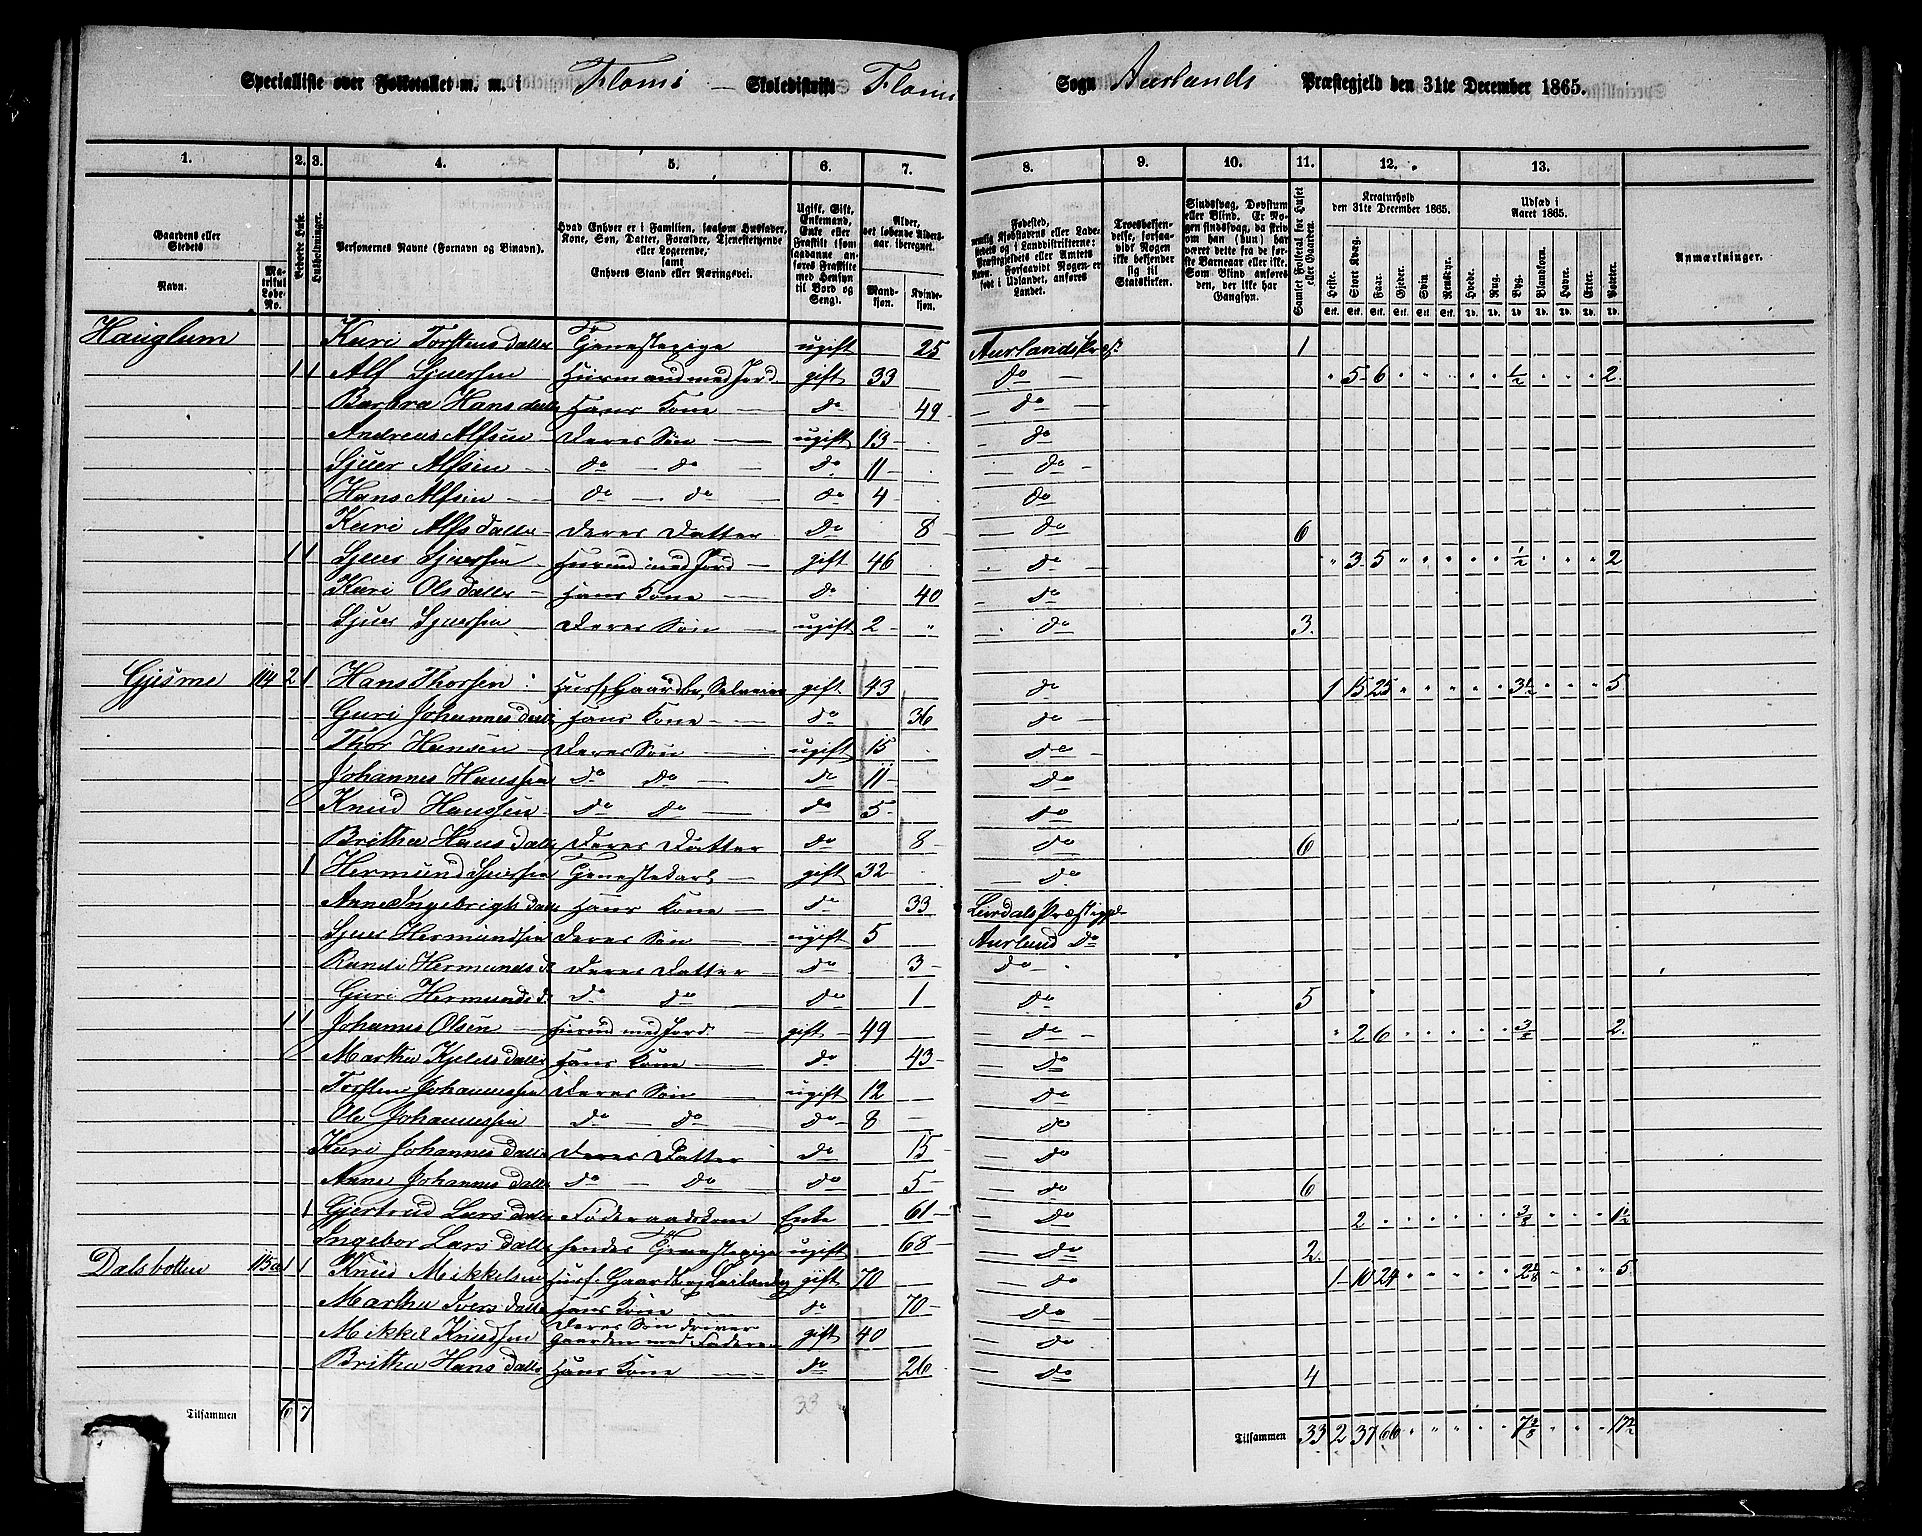 Specialliste over Folketallet m. m. i Flams — Skoledistrikt Flams Sogn Aurlands Præstegjeld den 31te December 1865.
1. 2. 3. 4. 5. 6. 7. 8. 9. 10. 11. 12. 13.
Gaardens eller Stedets Navn. Matrikul Løbe-No. Beboede Huse. Husholdninger. Personernes Navne (Fornavn og Binavn). Hvad Enhver er i Familien, saasom Husfader, Kone, Søn, Datter, Forældre, Tjenestetyende eller Logerende, samt Enhvers Stand eller Næringsvei. Ugift, Gift, Enkemand, Enke eller Fraskilt Alder, det løbende Aldersaar iberegnet. Mandkjøn. Kvindekjøn. Fødested, Troesbekjendelse, forsaavidt Nogen ikke bekjender sig til Statskirken. Sindssvag, Døvstum eller Blind. Samlet Folketal for Huset eller Gaarden. Kreaturhold den 31te December 1865. Udsæd i Aaret 1865. Anmærkninger.
Heste. Stort Kvæg. Faar. Gjeder. Svin. Rensdyr. Hvede. Rug. Byg. Blandkorn. Havre. Erter. Poteter.
Hauglum Kari Torstensdatter Tjenestepige ugift 25 Aurlands Præst 1
1 1 Alf Sjursen Huusmand med Jord gift 33 do " 5 6 " " " " " ½ " " " 2
Barbra Hansdatter Hans Kone do 49 do
Andreas Alfsen Deres Søn ugift 13 do
Sjur Alfsen do do do 11 do
Hans Alfsen do do do 4 do
Kari Alfsdatter Deres Datter do 8 do 6
1 1 Sjur Sjursen Huusmd med Jord gift 46 do " 3 5 " " " " " ½ " " " 2
Kari Olsdatter Hans Kone do 40 do
Sjur Sjursen Deres Søn ugift 2 " do 3
Gjisme 114 2 1 Hans Thorsen Husf. Gaardbr. Selveier gift 43 do 1 15 25 " " " " " 3½ " " " 5
Guri Johannesdatter Hans Kone do 36 do
Thor Hansen Deres Søn ugift 15 do
Johannes Hanssen do do do 11 do
Knud Hanssen do do do 5 do
Britha Hansdatter Deres Datter do 8 do 6
1 Hermund Sjursen Tjenestekarl gift 32 do
Anne Ingebrigtsdatter Hans Kone do 33 Leirdals Præstegjel
Sjur Hermundsen Deres Søn ugift 5 Aurland do
Randi Hermunds d Deres Datter do 3 do
Guri Hermunds d do do do 1 do 5
1 1 Johannes Olsen Husmd med Jord gift 49 do " 2 6 " " " " " 3/8 " " " 2
Martha Kjeldsdatter Hans Kone do 43 do
Torsten Johannessen Deres Søn ugift 12 do
Ole Johannessen do do do 8 do
Kari Johannesdatter Deres Datter do 15 do
Anne Johannesdatter do do do 5 do 6
1 Gjertrud Larsdatter Føderaadskone Enke 61 do 2 " " " " " " 3/8 " " " 1½
Ingebor Larsdatter hendes Tjenestepige ugift 68 do 2
Dalsbotten 115a 1 1 Knud Mikkelsen Husf. Gaardbr. gift 70 do 1 10 24 " " " " " 2 1/8 " " " 5
Martha Iversdatter Hans Kone do 70 do
Mikkel Knudsen Deres Søn driver Gaarden med Faderen gift 40 do
Britha Hansdatter Hans Kone do 26 do 4
Tilsammen 6 7 33 Tilsammen 33 2 37 66 " " " " " 7 3/8 " " " 17½